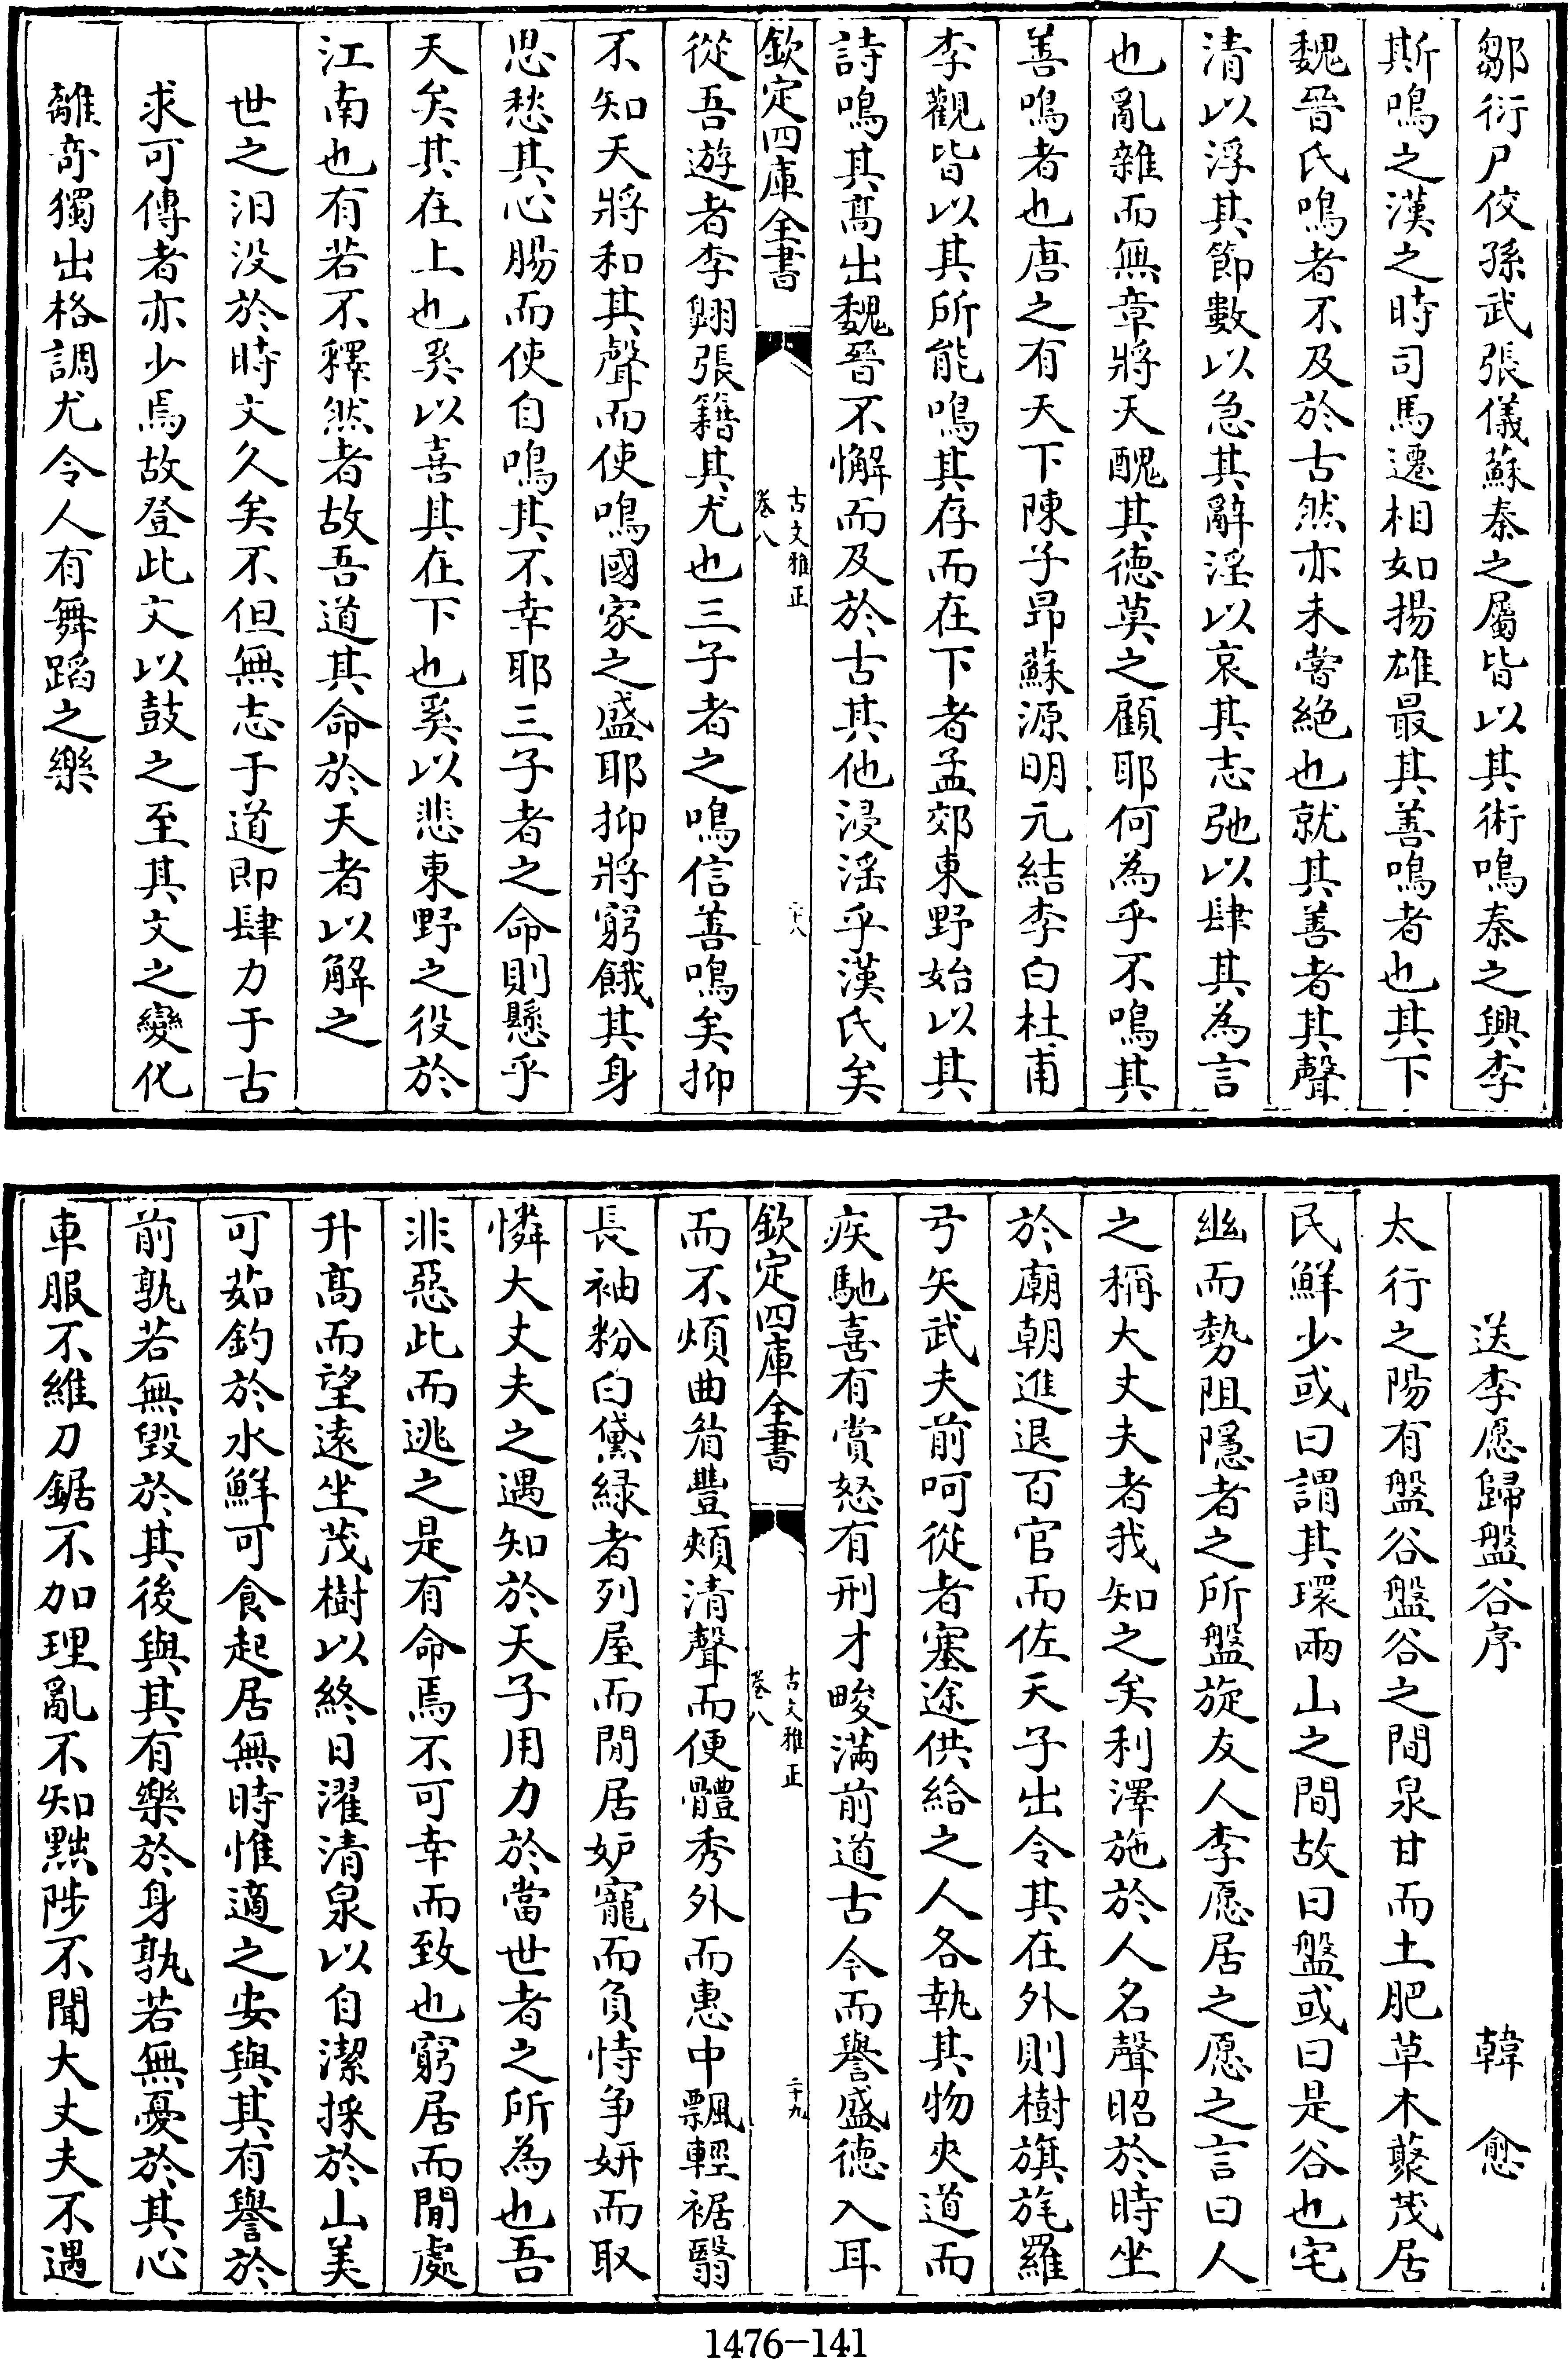 鄒衍尸佼孫武張儀蘇秦之屬皆以其術鳴秦之興李
斯鳴之漢之時司馬遷相如揚雄最其善鳴者也其下
魏晉氏鳴者不及於古然亦未嘗絕也就其善者其聲
清以浮其節數以急其辭淫以哀其志弛以肆其為言
也亂雜而無章將天醜其德莫之顧耶何為乎不鳴其
善鳴者也唐之有天下陳子昂蘇源明元結李白杜甫
李觀皆以其所能鳴其存而在下者孟郊東野始以其
詩鳴其髙出魏晉不懈而及於古其他浸淫乎漢氏矣
欽定四庫全書
古文雅正
卷八
二十八
從吾遊者李翺張籍其尤也三子者之鳴信善鳴矣抑
不知天將和其聲而使鳴國家之盛耶抑將窮餓其身
思愁其心腸而使自鳴其不幸耶三子者之命則懸乎
天矣其在上也奚以喜其在下也奚以悲東野之役於
江南也有若不釋然者故吾道其命於天者以解之
世之汨没於時文久矣不但無志于道即肆力于古
求可傳者亦少焉故登此文以鼓之至其文之變化
離奇獨出格調尤令人有舞蹈之樂
送李愿歸盤谷序 韓愈
太行之陽有盤谷盤谷之間泉甘而土肥草木藂茂居
民鮮少或曰謂其環兩山之間故曰盤或曰是谷也宅
幽而勢阻隱者之所盤旋友人李愿居之愿之言曰人
之稱大丈夫者我知之矣利澤施於人名聲昭於時坐
於廟朝進退百官而佐天子出令其在外則樹旗旄羅
弓矢武夫前呵從者塞途供給之人各執其物夾道而
疾馳喜有賞怒有刑才畯滿前道古今而譽盛德入耳
欽定四庫全書
古文雅正
卷八
二十九
而不煩曲眉豐頰清聲而便體秀外而惠中飄輕裾翳
長袖粉白黛緑者列屋而閒居妒寵而負恃争妍而取
憐大丈夫之遇知於天子用力於當世者之所為也吾
非惡此而逃之是有命焉不可幸而致也窮居而閒處
升髙而望遠坐茂樹以終日濯清泉以自潔採於山美
可茹釣於水鮮可食起居無時惟適之安與其有譽於
前孰若無毁於其後與其有樂於身孰若無憂於其心
車服不維刀鋸不加理亂不知黜陟不聞大丈夫不遇
1476-141